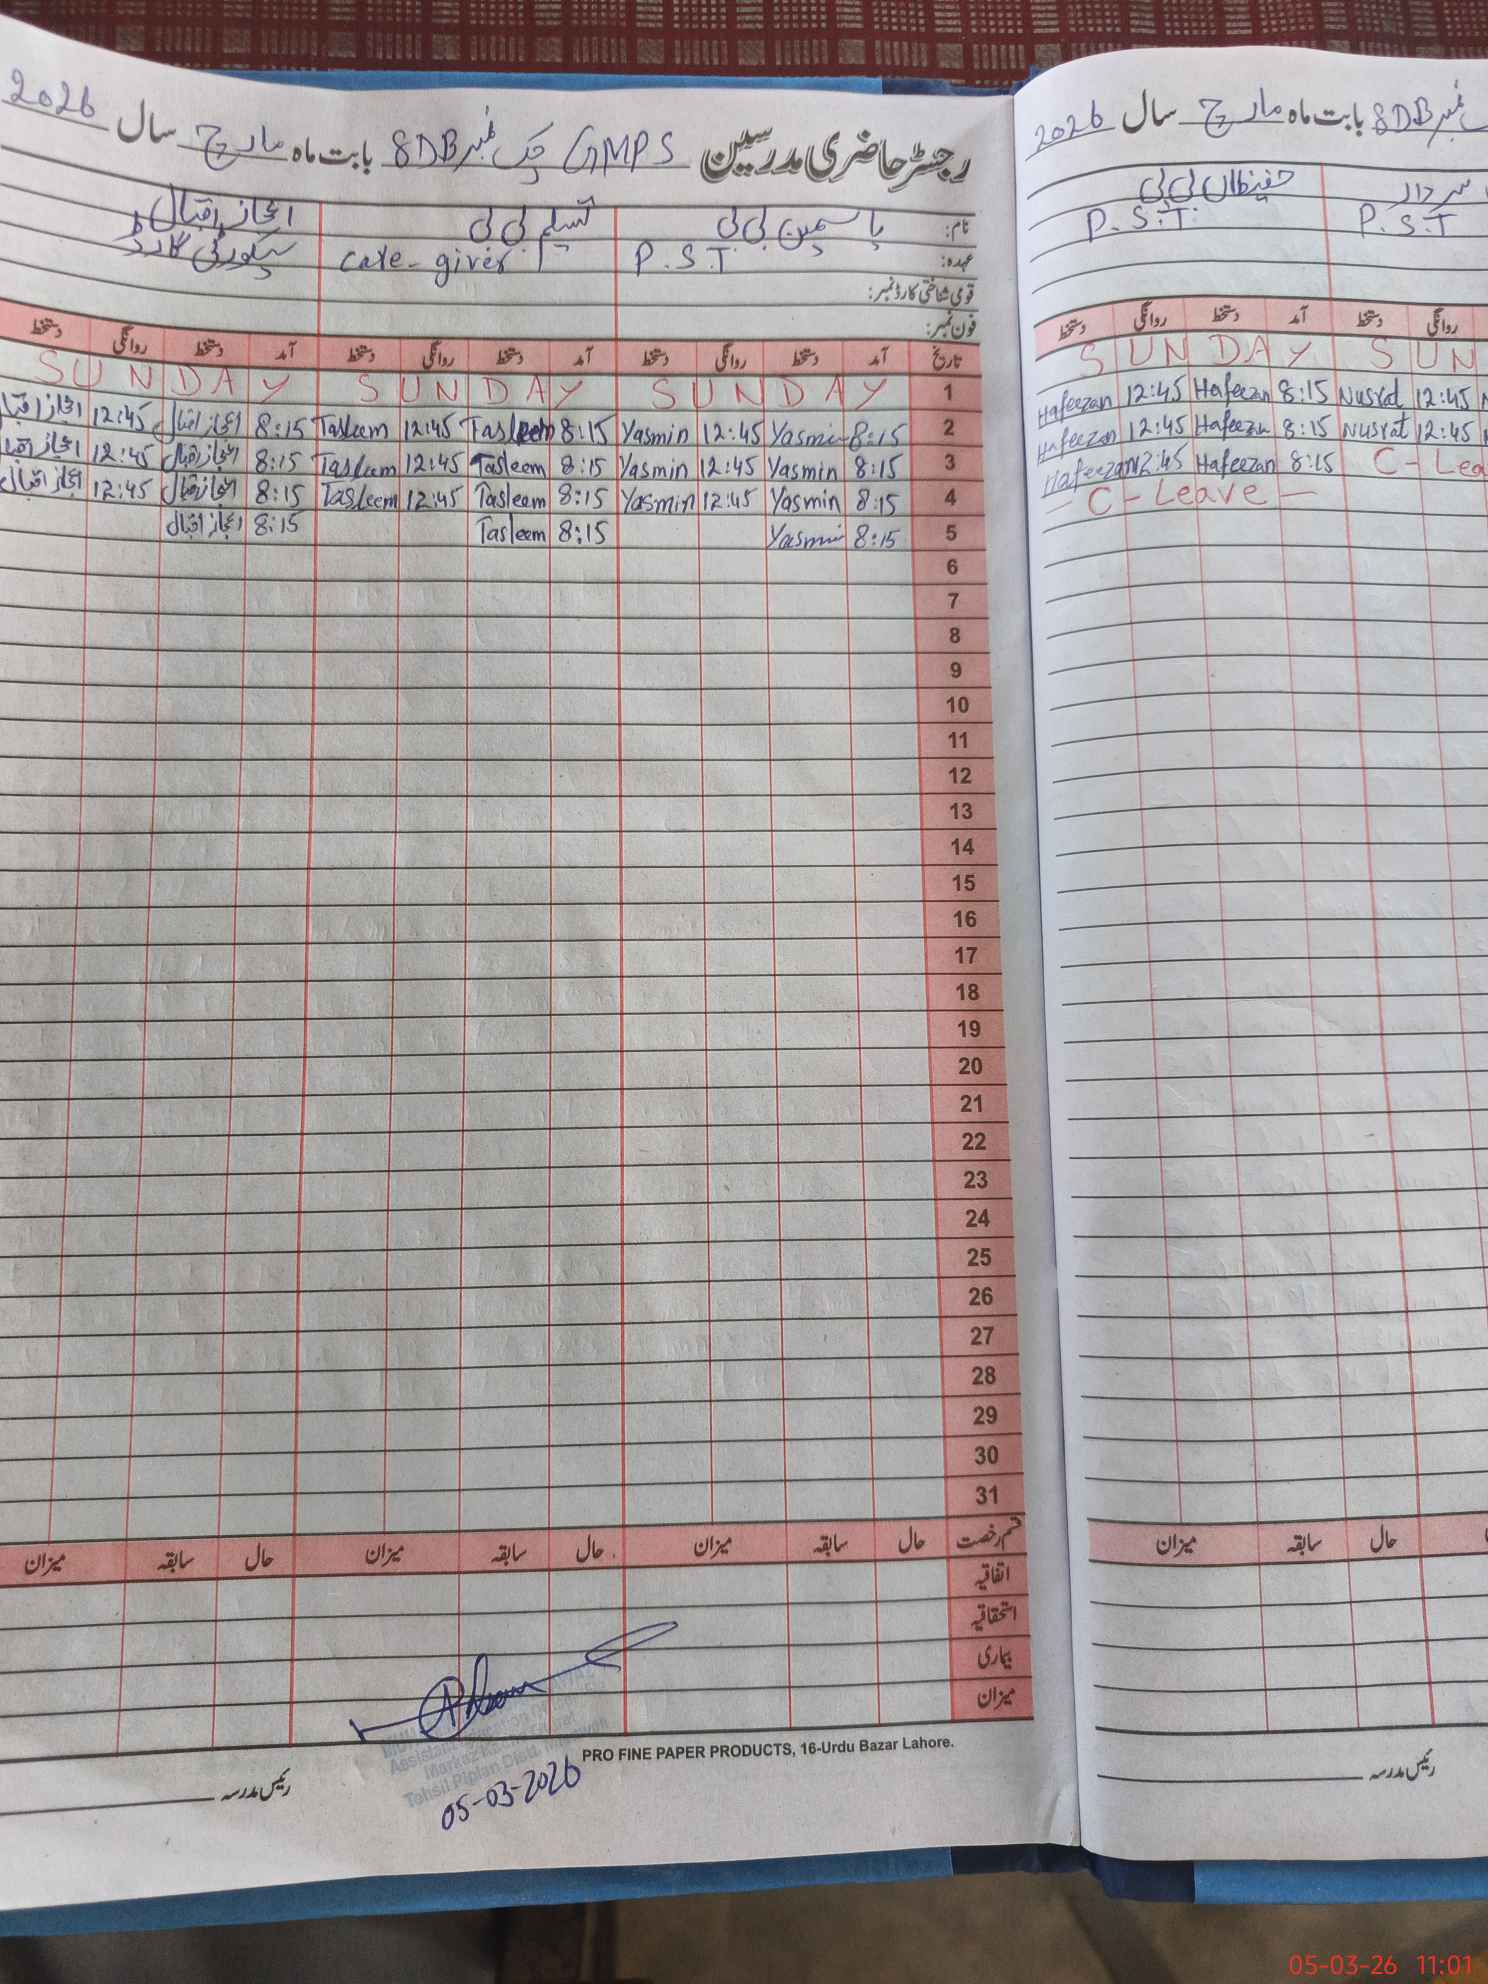 رجسٹر حاضری مدرسین GMPS چک نمبر 8DB بابت ماہ مارچ سال 2026
نام: یاسمین بی بی تسلیم بی بی اعجاز اقبال
عہدہ: P.S.T. care-giver سیکورٹی گارڈ
قومی شناختی کارڈ نمبر:
فون نمبر:
تاریخ آمد دستخط روانگی دستخط آمد دستخط روانگی دستخط آمد دستخط روانگی دستخط
1 SUNDAY SUNDAY SUNDAY
2 8:15 Yasmin 12:45 Yasmin 8:15 Tasleem 12:45 Tasleem 8:15 اعجاز اقبال 12:45 اعجاز اقبال
3 8:15 Yasmin 12:45 Yasmin 8:15 Tasleem 12:45 Tasleem 8:15 اعجاز اقبال 12:45 اعجاز اقبال
4 8:15 Yasmin 12:45 Yasmin 8:15 Tasleem 12:45 Tasleem 8:15 اعجاز اقبال 12:45 اعجاز اقبال
5 8:15 Yasmin 8:15 Tasleem 8:15 اعجاز اقبال
6
7
8
9
10
11
12
13
14
15
16
17
18
19
20
21
22
23
24
25
26
27
28
29
30
31
قسم رخصت حال سابقہ میزان حال سابقہ میزان حال سابقہ میزان
اتفاقیہ
استحقاقیہ
بیماری
میزان
Tehsil Piplan Distt.
05-03-2026
PRO FINE PAPER PRODUCTS, 16-Urdu Bazar Lahore.
رئیس مدرسہ
نمبر 8DB بابت ماہ مارچ سال 2026
سردار حفیظاں بی بی
P.S.T P.S.T.
روانگی دستخط آمد دستخط روانگی دستخط
SUN SUNDAY
12:45 Nusrat 8:15 Hafeezan 12:45 Hafeezan
12:45 Nusrat 8:15 Hafeezan 12:45 Hafeezan
C-Lea 8:15 Hafeezan 12:45 Hafeezan
- C - Leave -
حال سابقہ میزان
رئیس مدرسہ
05-03-26 11:01